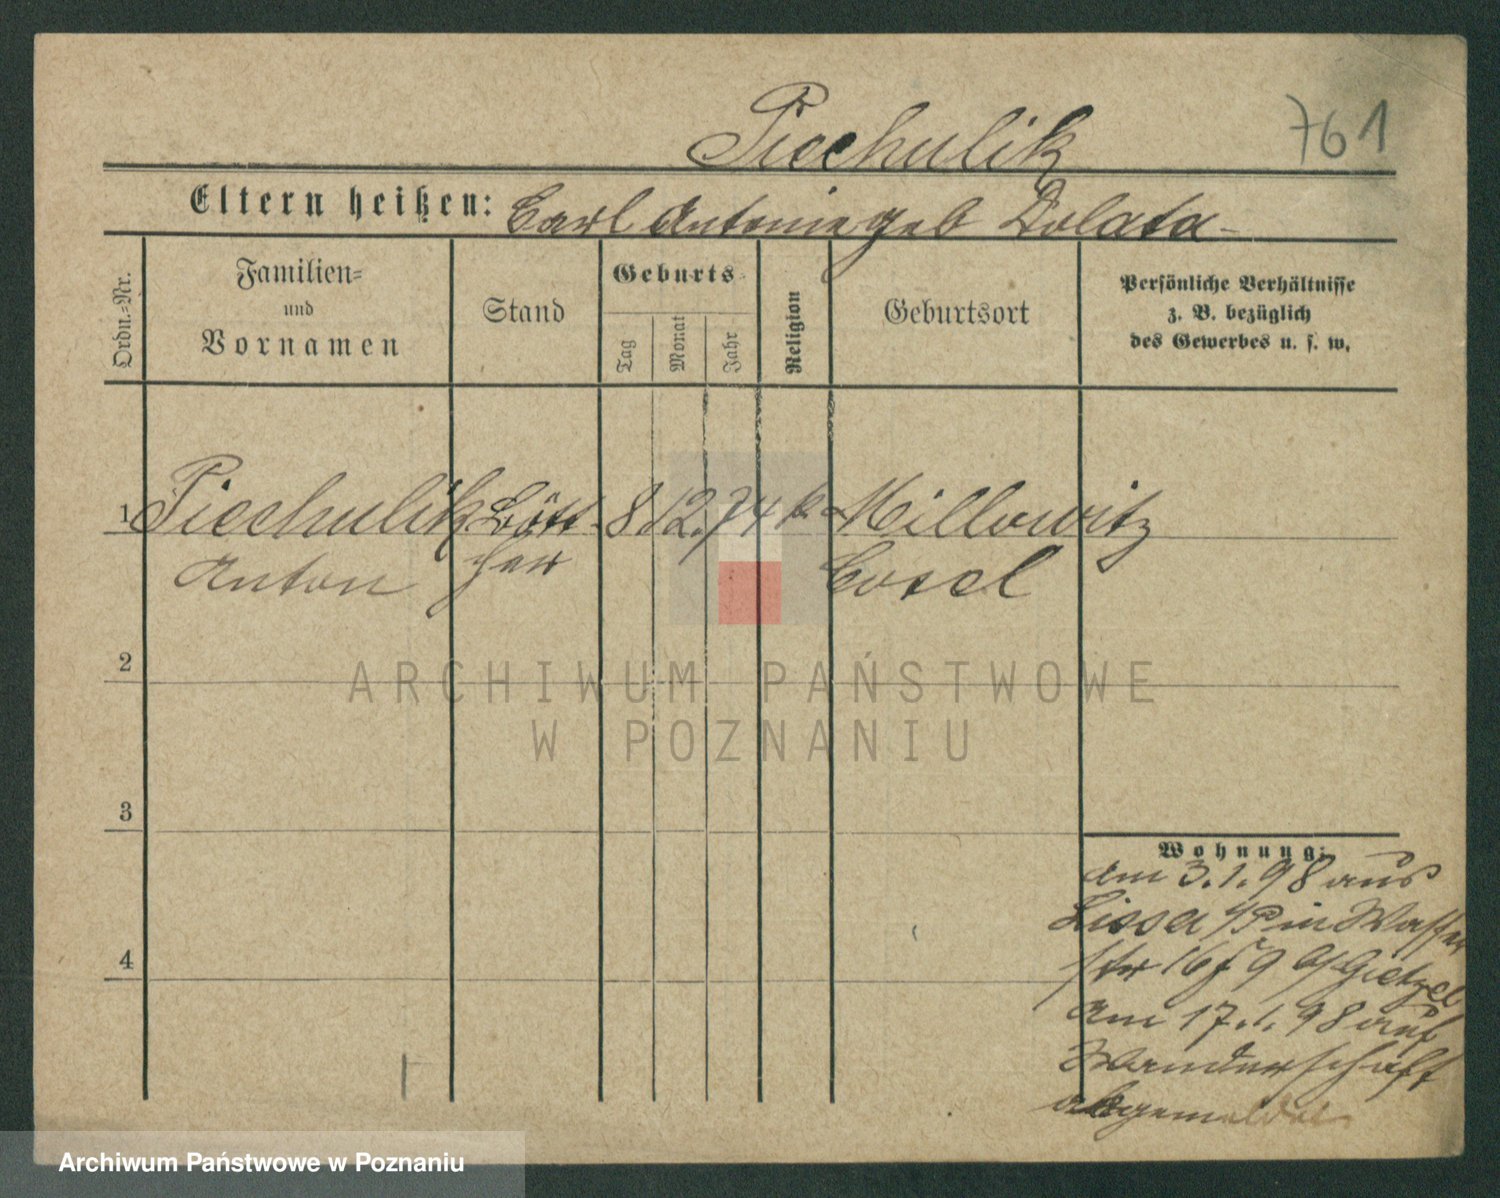 Piechulik 761
Eltern heißen: Carl Antonie geb Dolata
Ordn.-Nr.
Familien-
und
Vornamen
Stand
Geburts-
Tag
Monat
Jahr
Religion
Geburtsort
Persönliche Verhältnisse
z. B. bezüglich
des Gewerbes u. s. w.
1 Piechulik Bött- 8 12. 74 k. Millowitz
Anton cher Cosel
2
3
4
Wohnung:
am 3.1.98 aus
Lissa i/P in Wasser
str 16 b/Gietzel
am 17.1.98 auf
Wanderschaft
abgemeldet
ARCHIWUM PAŃSTWOWE
W POZNANIU
Archiwum Państwowe w Poznaniu